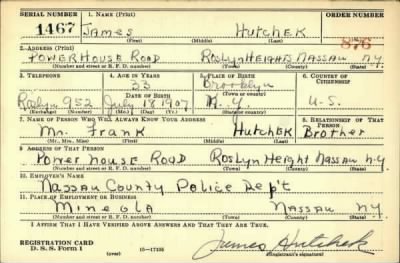 SERIAL NUMBER 1. NAME (Print) ORDER NUMBER
1467 James Hutchek 876
(First) (Middle) (Last)
2. ADDRESS (Print)
POWER HOUSE ROAD ROSLYN HEIGHTS NASSAU N.Y.
(Number and street or R. F. D. number) (Town) (County) (State)
3. TELEPHONE 4. AGE IN YEARS 5. PLACE OF BIRTH 6. COUNTRY OF CITIZENSHIP
33 Brooklyn
DATE OF BIRTH (Town or county)
Roslyn 952 July 18 1907 N.Y. U.S.
(Exchange) (Number) (Mo.) (Day) (Yr.) (State or country)
7. NAME OF PERSON WHO WILL ALWAYS KNOW YOUR ADDRESS 8. RELATIONSHIP OF THAT PERSON
Mr. Frank Hutchek Brother
(Mr., Mrs., Miss) (First) (Middle) (Last)
9. ADDRESS OF THAT PERSON
Power House Road Roslyn Height Nassau N.Y
(Number and street or R. F. D. number) (Town) (County) (State)
10. EMPLOYER'S NAME
Nassau County Police Dep't
11. PLACE OF EMPLOYMENT OR BUSINESS
Mineola Nassau NY
(Number and street or R. F. D. number) (Town) (County) (State)
I AFFIRM THAT I HAVE VERIFIED ABOVE ANSWERS AND THAT THEY ARE TRUE.
REGISTRATION CARD
D. S. S. Form 1 (over) 16—17105 James Hutchek
(Registrant's signature)